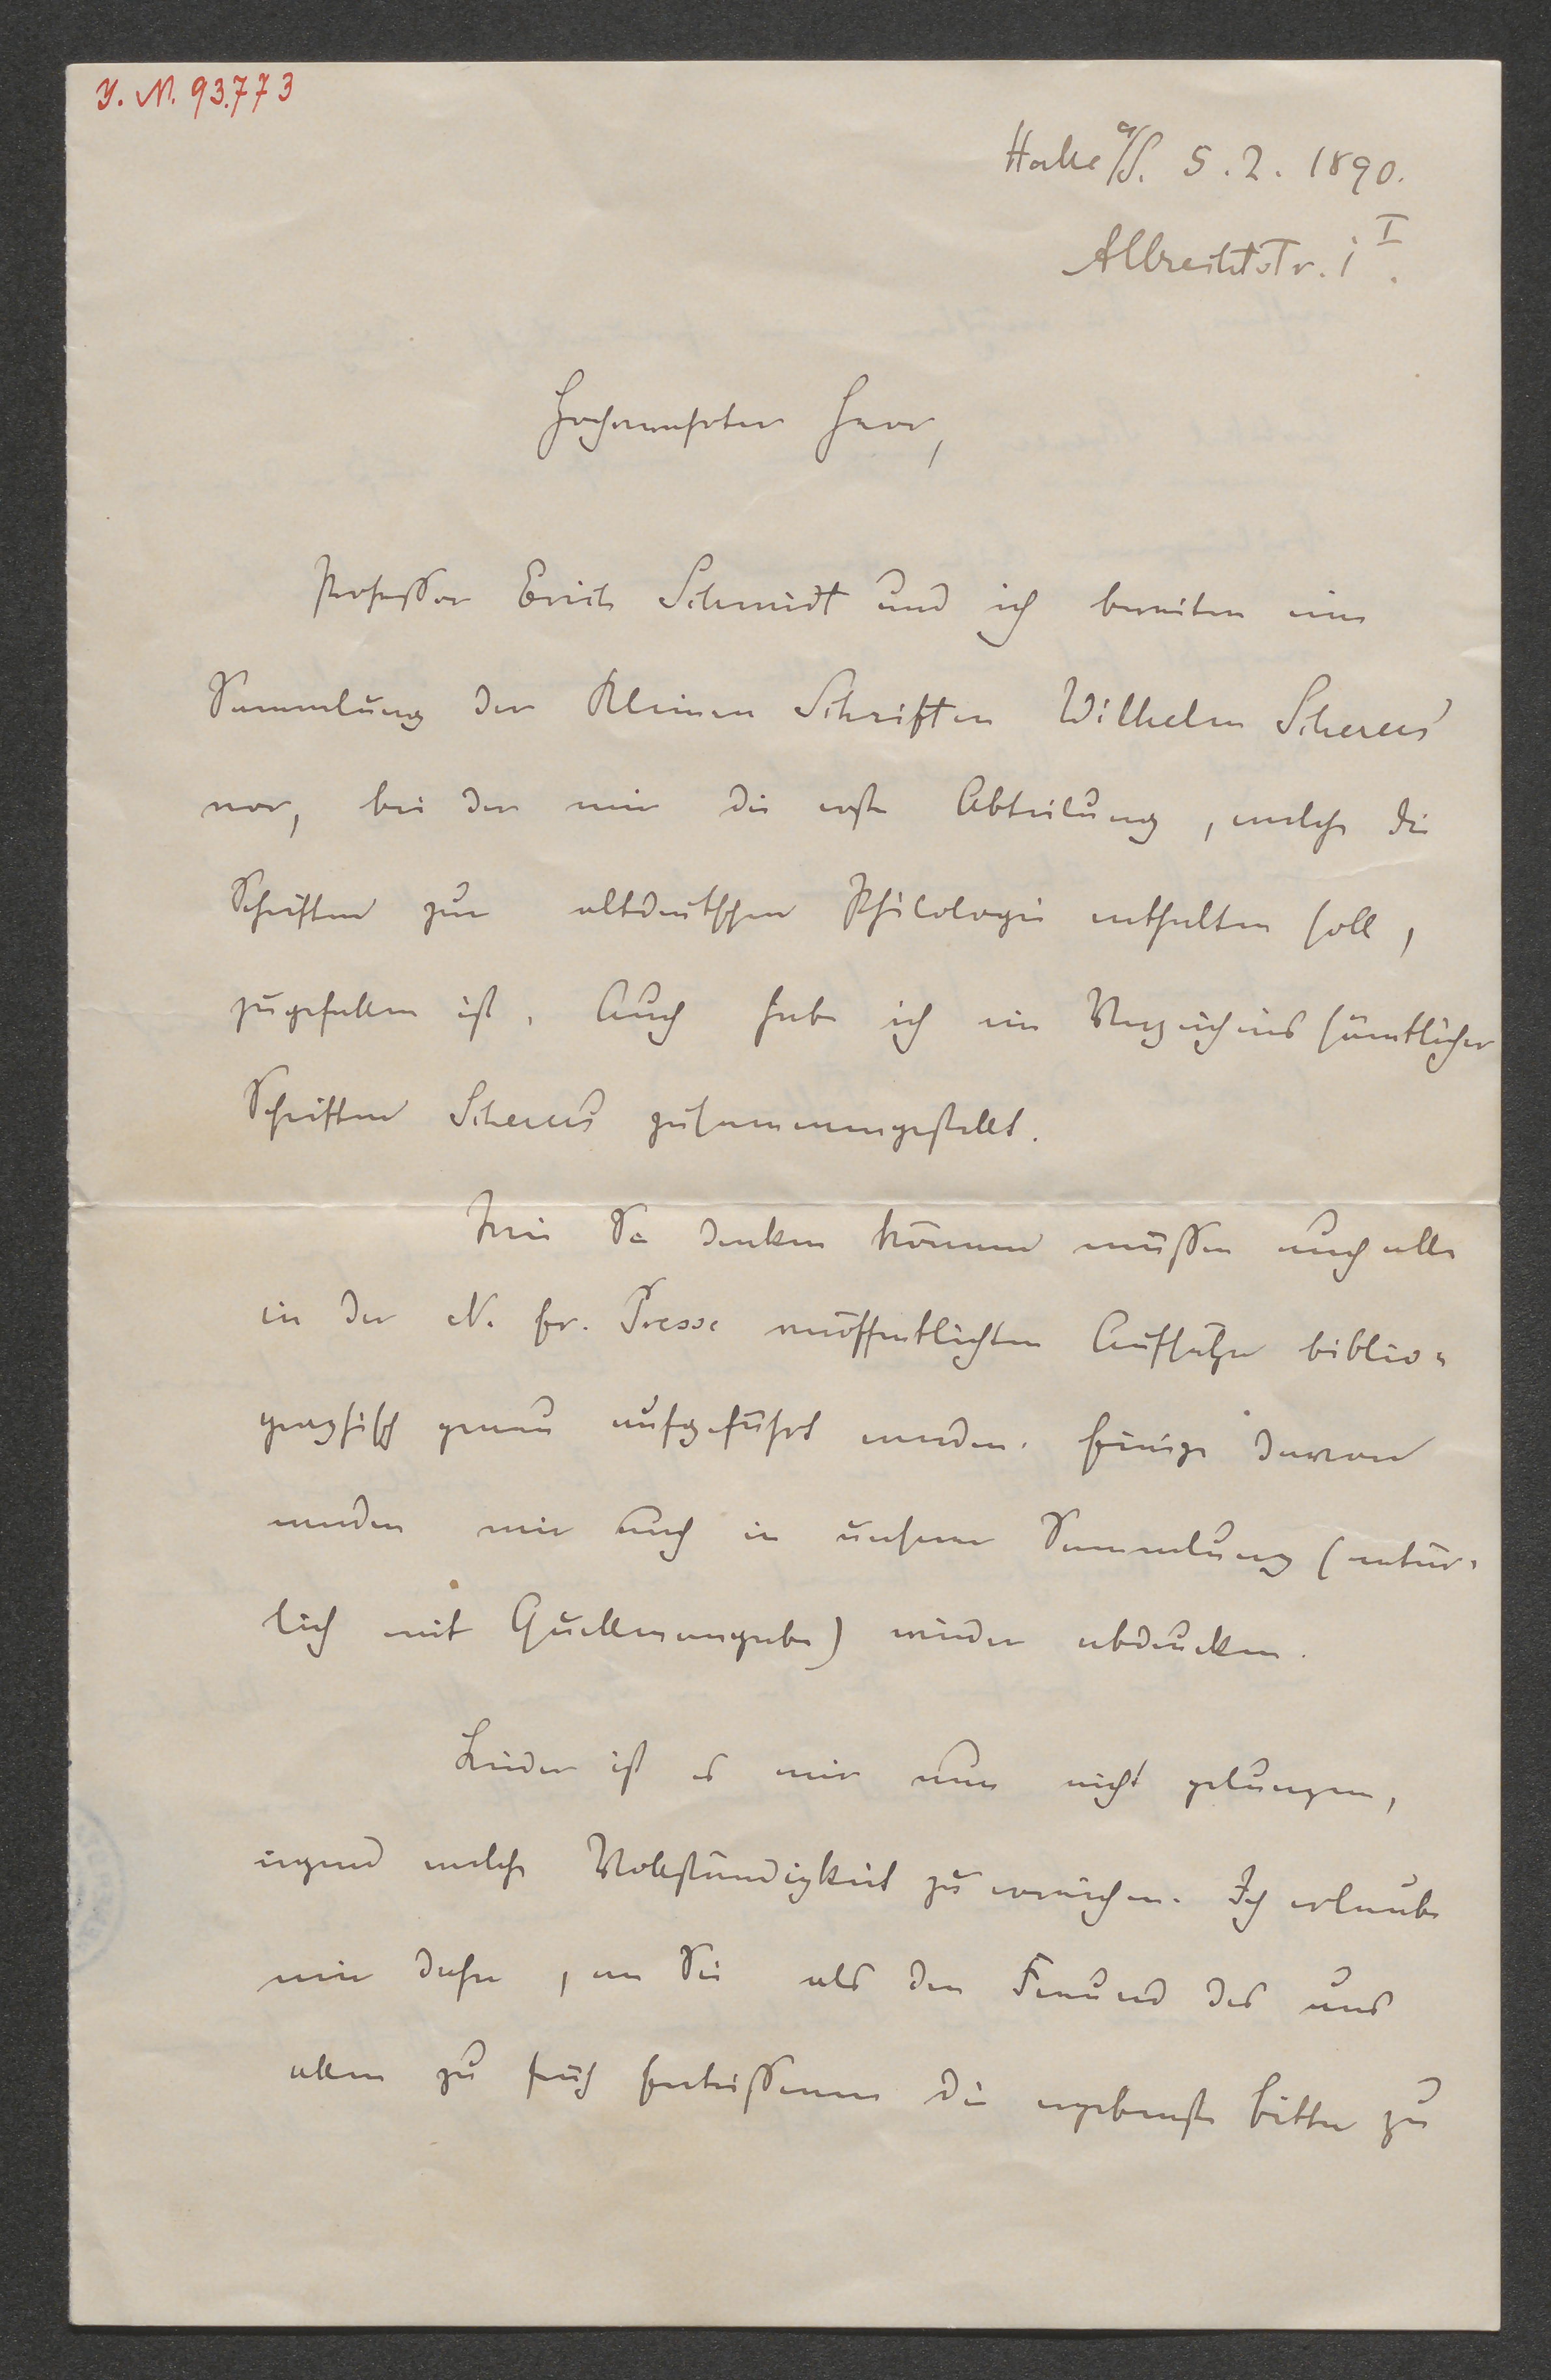 I. N. 93.773
Halle a/S. 5. 2. 1890.
Albrechtstr. 1 I.
Hochverehrter Herr,
Professor Erich Schmidt und ich bereiten eine
Sammlung der Kleinen Schriften Wilhelm Scherers
vor, bei der mir die erste Abteilung, welche die
Schriften zur altdeutschen Philologie enthalten soll,
zugefallen ist. Auch habe ich ein Verzeichnis sämtlicher
Schriften Scherers zusammengestellt.
Wie Sie denken können müssen auch alle
in der N. fr. Presse veröffentlichten Aufsätze biblio-
graphisch genau aufgeführt werden. Einige davon
werden wir auch in unserer Sammlung (natür-
lich mit Quellenangabe) wieder abdrucken.
Leider ist es mir nun nicht gelungen,
irgend welche Vollständigkeit zu erreichen. Ich erlaube
mir daher, an Sie als den Freund des uns
allen zu früh Entrissenen die ergebenste Bitte zu